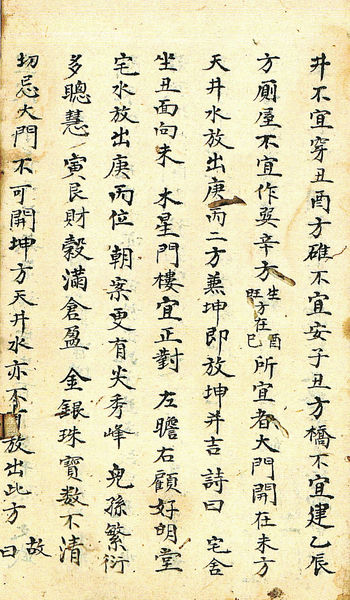 井不宜穿丑酉方碓不宜安子丑方橋不宜建乙辰
方厠屋不宜作巽辛方生旺方在酉巳所宜者大門開在未方
天井水放出庚丙二方兼坤即放坤并吉 詩曰 宅舍
坐丑面向未 木星門樓宜正對 左瞻右顧好明堂
宅水放出庚丙位 朝案更有尖秀峰 兒孫繁衍
多聰慧 寅艮財穀滿倉盈 金銀珠寶数不清
切忌大門不可開坤方天井水亦不可放出此方 故曰